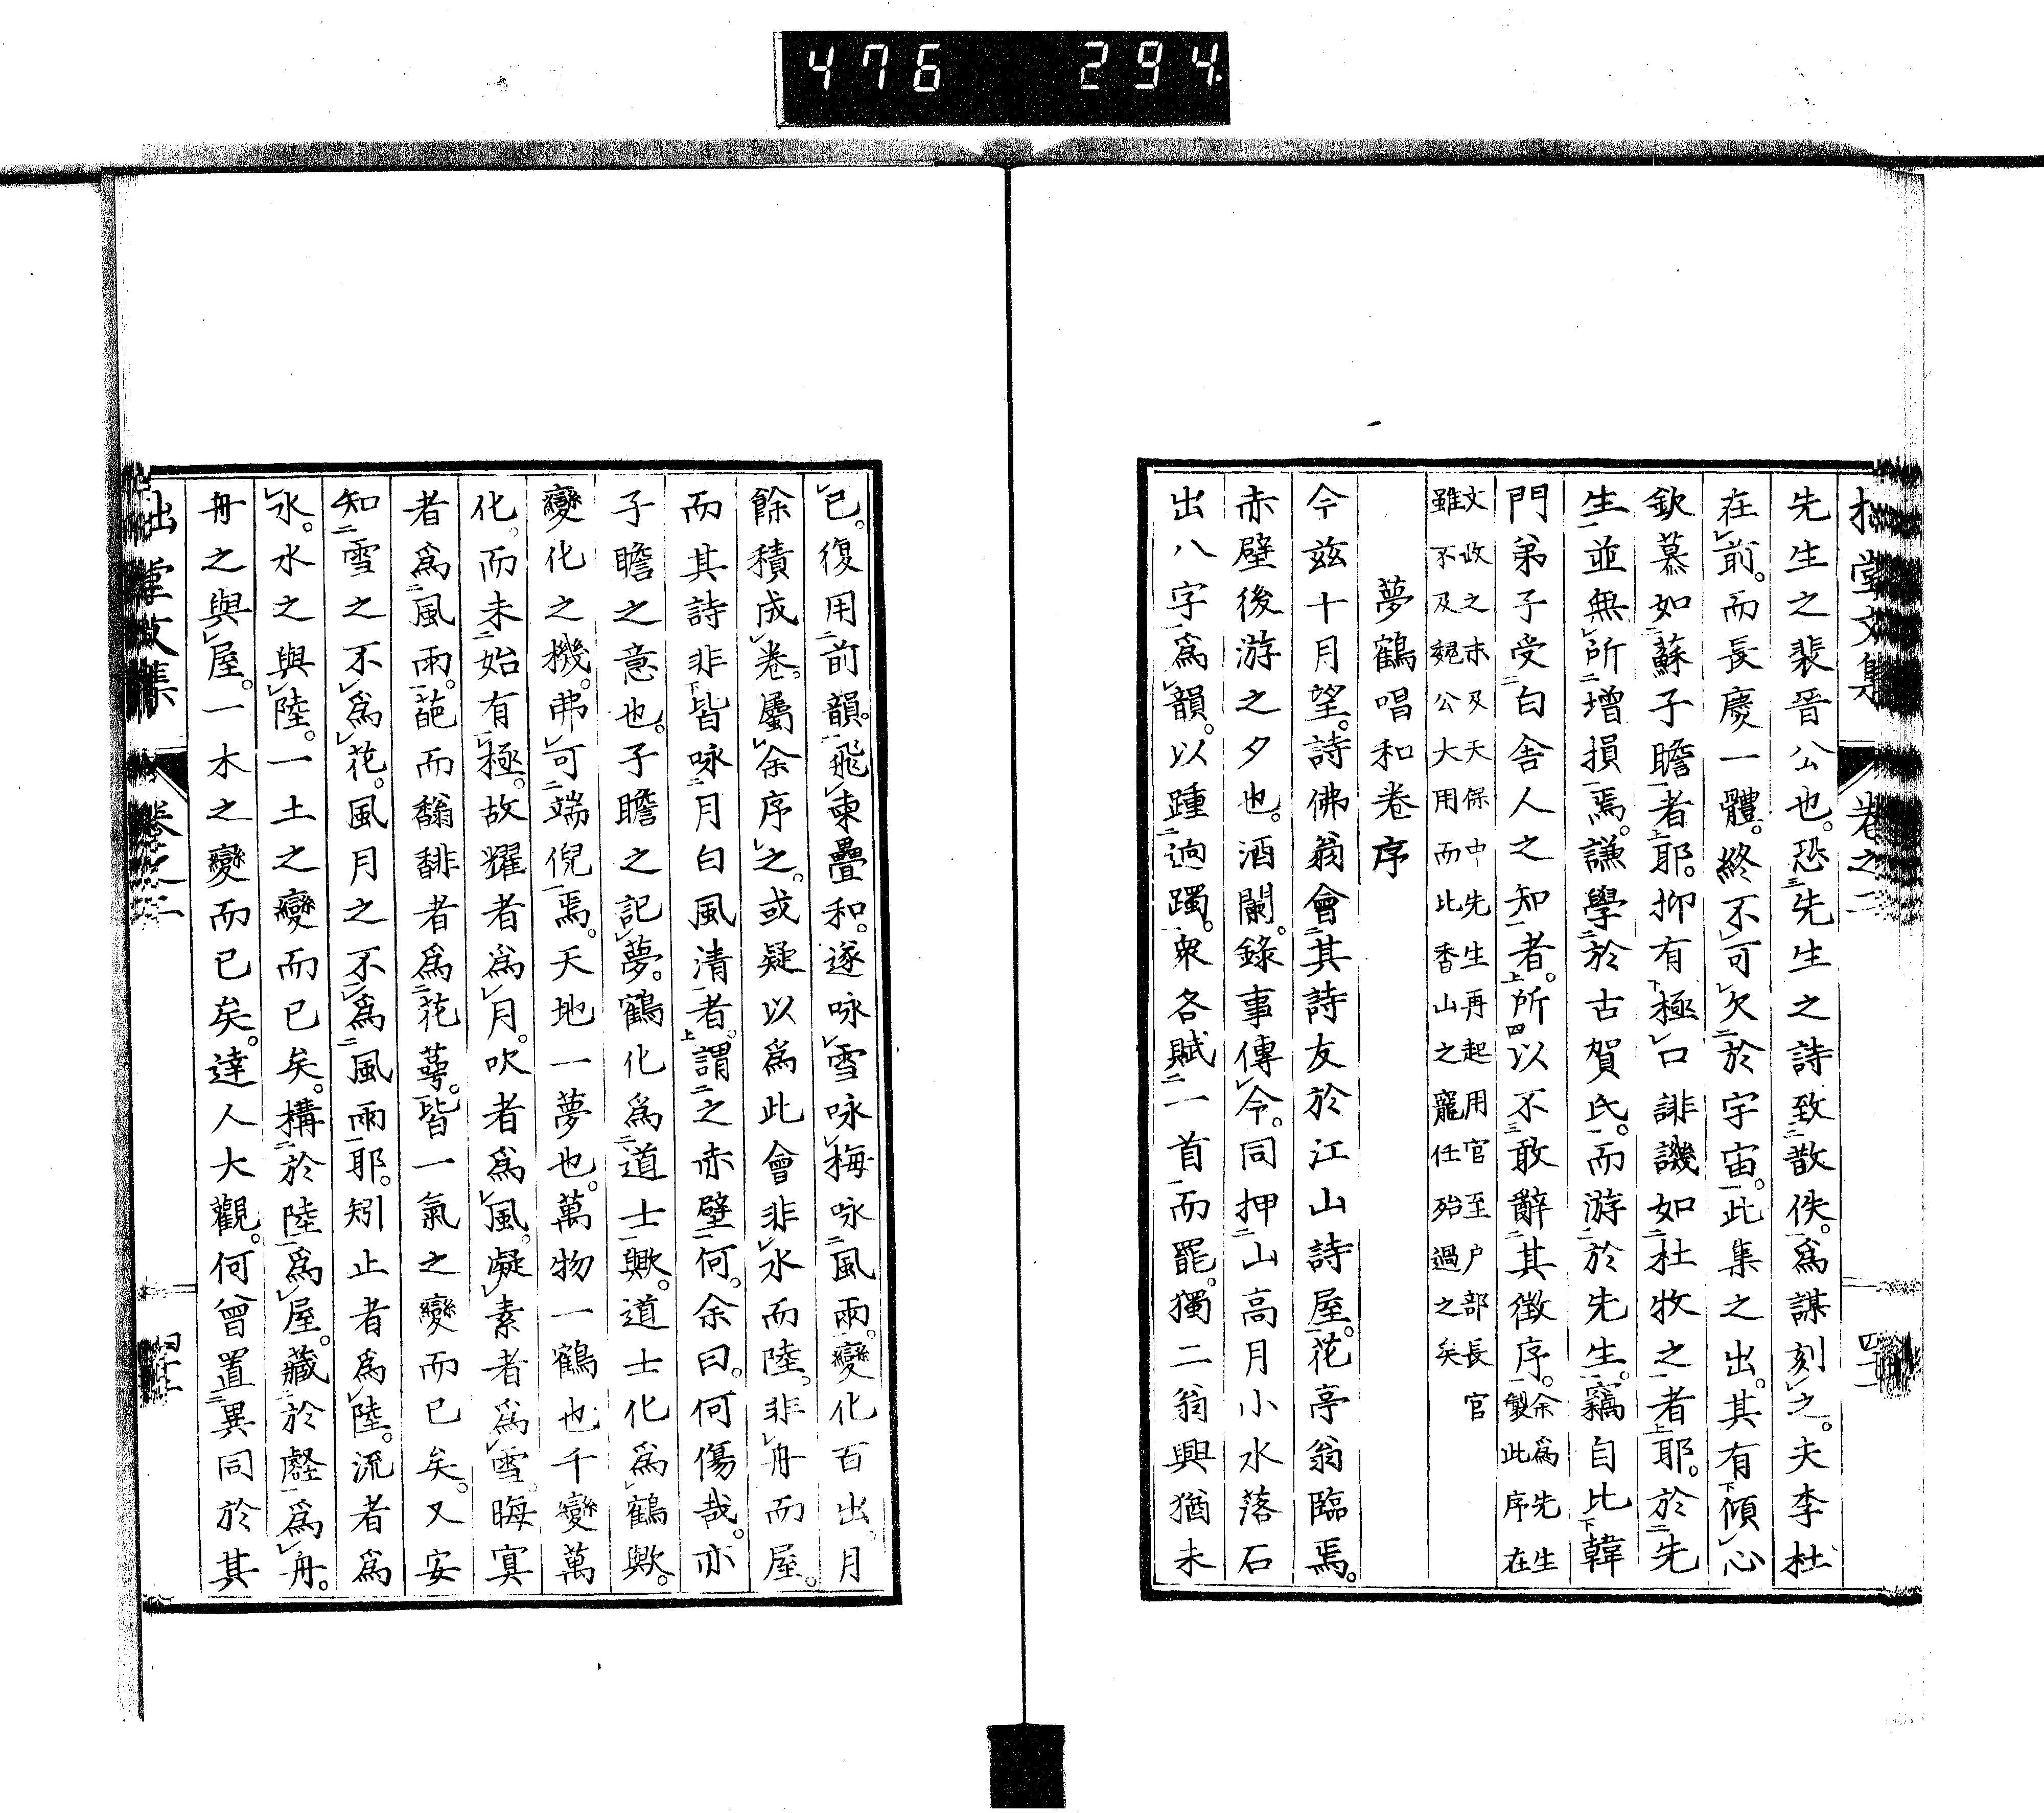 476 294
先生之裴晉公也。恐先生之詩致散佚。爲謀刻之。夫李杜
在前。而長慶一體。終不可欠於宇宙。此集之出。其有傾心
欽慕如蘇子瞻者耶。抑有極口誹譏如杜牧之者耶。於先
生並無所增損焉。謙學於古賀氏。而游於先生。竊自比韓
門弟子受白舍人之知者。所以不敢辭其徵序。余爲先生製此序在
文政之末及天保中先生再起用官至戶部長官
雖不及魏公大用而比香山之寵任殆過之矣
夢鶴唱和卷序
今茲十月望。詩佛翁會其詩友於江山詩屋。花亭翁臨焉。
赤壁後游之夕也。酒闌。錄事傳令。同押山高月小水落石
出八字爲韻。以踵逈躅。衆各賦一首而罷。獨二翁興猶未
已。復用前韻。飛柬疊和。遂咏雪咏梅咏風雨。變化百出。月
餘積成卷。屬余序之。或疑以爲此會非水而陸。非舟而屋。
而其詩非皆咏月白風清者。謂之赤壁何。余曰。何傷哉。亦
子瞻之意也。子瞻之記夢。鶴化爲道士歟。道士化爲鶴歟。
變化之機。弗可端倪焉。天地一夢也。萬物一鶴也千變萬
化。而未始有極。故耀者爲月。吹者爲風。凝素者爲雪。晦寞
者爲風雨。葩而翻馡者爲花萼。皆一氣之變而已矣。又安
知雪之不爲花。風月之不爲風雨耶。矧止者爲陸。流者爲
水。水之與陸。一土之變而已矣。構於陸爲屋。藏於壑爲舟。
舟之與屋。一木之變而已矣。達人大觀。何曾置異同於其
堂文集 卷之二